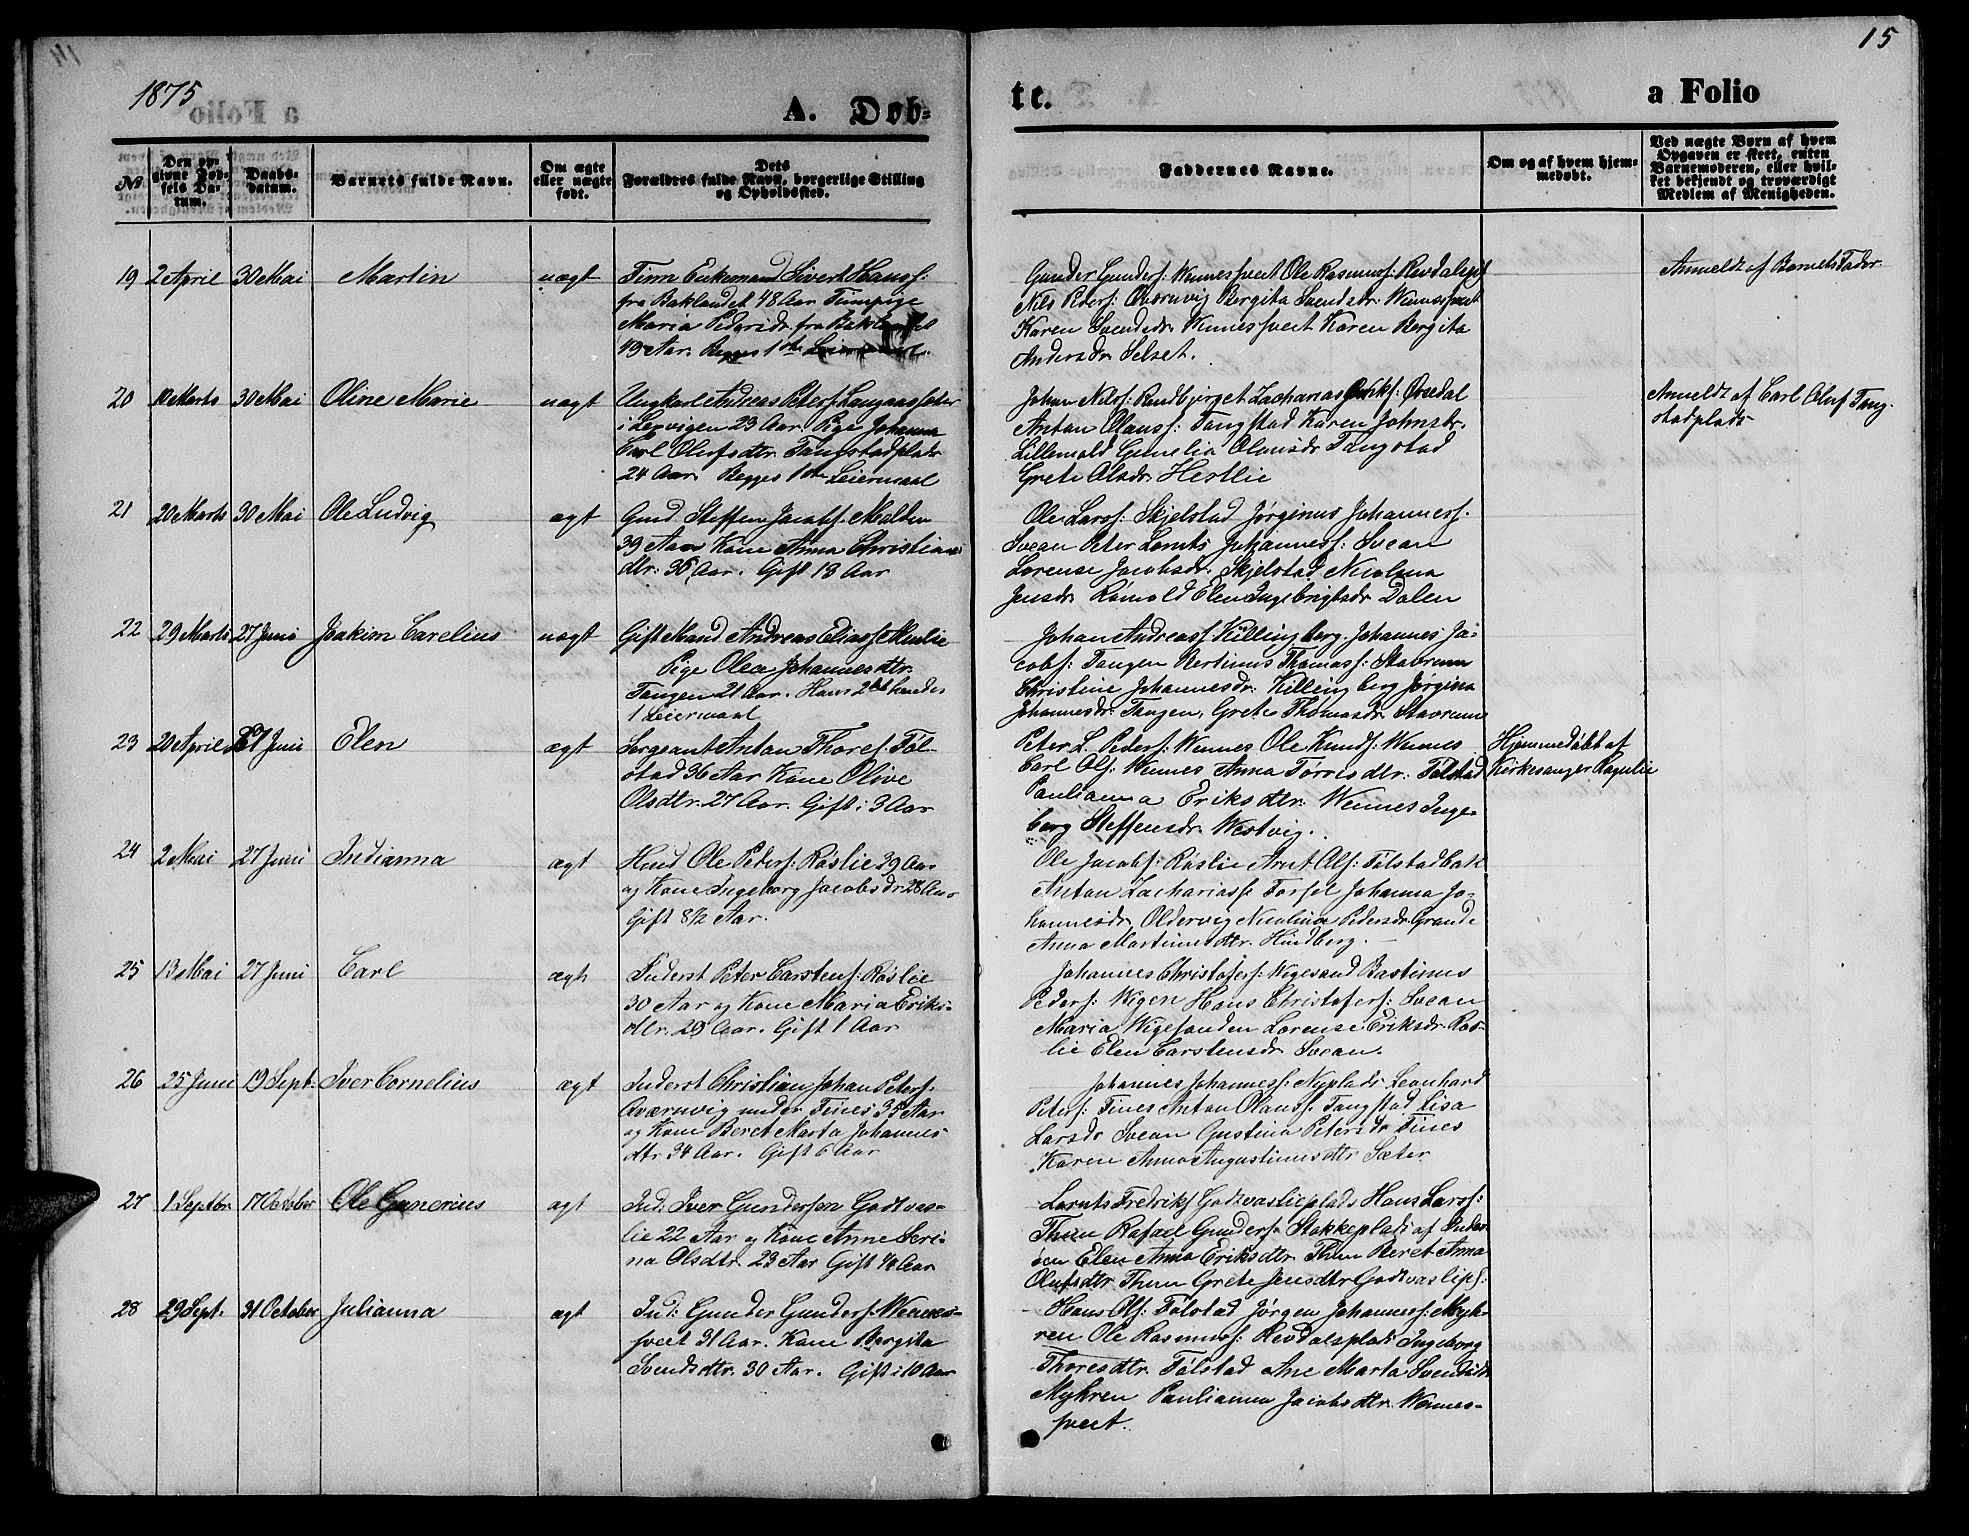 15
1875
A. Døb-
te.
a Folio
No
Den op-
givne Fød-
sels Da-
tum.
Daabs-
datum.
Barnets fulde Navn.
Om ægte
eller uægte
født.
Dets
Forældres fulde Navn, borgerlige Stilling
og Opholdssted.
Faddernes Navne.
Om og af hvem hjem-
medøbt.
Ved uægte Børn af hvem
Opgaven er skeet, enten
Barnemoderen, eller hvil-
ket bekjendt og troværdigt
Medlem af Menigheden.
19 2 April 30 Mai Martin uægt
Enkemand Sivert Hanss:
fra Baklandet 48 Aar Tienpige
Maria Pedersdr. fra Baklandet
49 Aar. Begges 1ste
Gunder Gunders: Wennesfveet Ole Rasmuss: Revdalspl
Nils Peders: Qværnvig Bergita Svendsdr. Wennesfveet
Karen Svendsdr. Wennesfveet Karen Bergita
Andersdr. Selset.
Anmeldt af Barnets Fader.
20 10 Marts 30 Mai Oline Marie uægt
Ungkarl Andreas Peters: Langaassæter
i Lexvigen 23 Aar. Pige Johanna
Carl Olufsdtr. Tangstadplads
24 Aar Begges 1ste Leiermaal
Johan Nilss: Rendbjerget Zacharias Eriks: Øvsdal
Anton Olauss: Tangstad Karen Johnsdr.
Lillemald Gunelia Olausdr. Tangstad
Grete Olsdr. Hestlie
Anmeldt af Carl Oluf Tang-
stadplads
21 20 Marts 30 Mai Ole Ludvig ægt
Gmd. Steffen Jacobs: Malden
39 Aar Kone Anna Christians
dtr: 36 Aar. Gift 13 Aar
Ole Larss: Skjelstad Jørginus Johanness.
Svean Peter Lornts Johanness: Svean
Lorense Jacobsdr. Skjelstad Nicolina
Jensdr. Romold Elen Ingebrigtsdr Dalen
22 29 Marts 27 Juni Joakim Carelius uægt
Gift Mand Andreas Eliass Muslie
Pige Olea Johannesdtr.
Tangen 21 Aar. Hans 2det hendes
1 Leiermaal
Johan Andreass Killingberg. Johannes Ja-
cobs: Tangen Bertinus Thomass: Stavrum
Christine Johannesdr. Killingberg Jørgina
Johannesdr. Tangen, Grete Thomasdr. Stavrum
23 20 April 27 Juni Elen ægt
Sergeant Anton Thores: Tøl-
stad 36 Aar Kone Olive
Olsdtr. 27 Aar. Gift i 3 Aar
Peter L. Peders: Wennes Ole Knuds: Wennes
Carl Ols: Wennes Anna Torresdtr: Tølstad
Paulianna Eriksdtr: Wennes Inge-
borg Steffensdr. Westvig.
Hjemmedøbt af
Kirkesanger Raqulie
24 2 Mai 27 Juni Indianna ægt
Hmd Ole Peders: Røslie 39 Aar
og Kone Ingeborg Jacobsdr. 28 Aar
Gift 8½ Aar.
Ole Jacobs: Røslie Arnt Ols: Tølstadbak
Anton Zachariass Forsel Johanna Jo-
hannesdr. Oldervig Nicolina Pedersdr. Grande
Anna Martinusdtr. Hindberg.
25 13 Mai 27 Juni Carl ægt
Inderst Peter Carstens: Røslie
30 Aar og Kone Maria Eriks-
dtr. 29 Aar. Gift 1 Aar
Johannes Christofers: Wigesand Bastinus
Peders: Wigen Hans Christofers: Svean
Maria Wigesanden Lorense Eriksdr. Røs-
lie Elen Carstensdr. Svean.
26 25 Juni 19 Sept. Iver Cornelius ægt
Inderst Christian Johan Peters:
Qværnvig under Fines 35 Aar
og Kone Beret Marta Johannes
dtr 34 Aar. Gift 6 Aar
Johannes Johanness: Nyplads Leonhard
Peters: Fines Anton Olauss: Tangstad Lisa
Larsdr Svean Gustina Petersdr Fines
Karen Anna Augustinusdtr Sæter
27 1 Septbr. 17 October Ole Gunerius ægt
Ind: Iver Gundersen Godtvas-
lie 22 Aar og Kone Anne Seri-
na Olsdtr. 23 Aar Gift ¾ Aar
Lornts Fredriks Godtvaslieplads Hans Larss:
Thun Rafael Gunders Stokkeplads af Inder-
øen Elen Anna Eriksdtr. Thun Beret Anna
Olufsdtr Thun Grete Jensdtr Godtvasliepl:
28 29 Sept. 31 October Julianna ægt
Ind: Gunder Gunders: Wennes-
sveet 31 Aar. Kone Bergita
Svendsdtr. 30 Aar. Gift i 10 Aar
Hans Ols: Tølstad Jørgen Johanness: Myh-
ren Ole Rasmuss: Revdalsplads Ingeborg
Thoresdtr. Tølstad Ane Marta Svendsdtr
Myhren Paulianna Jacobsdtr. Wennes-
sveet.